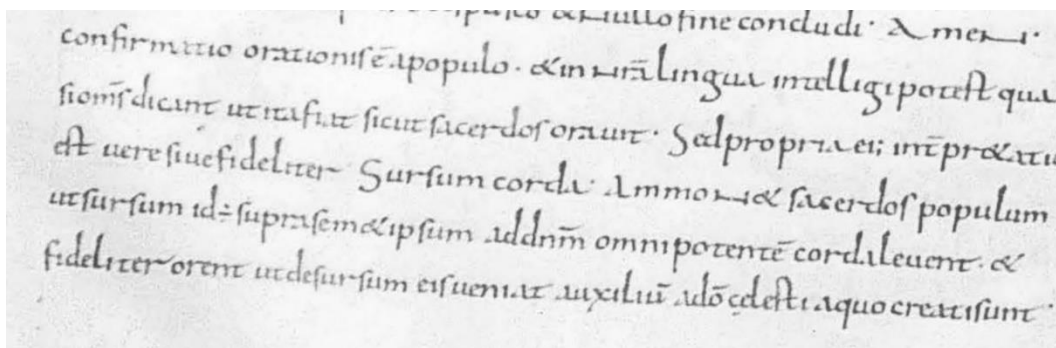 & nullo fine concludi · Amen ·
confirmatio orationis ē apopulo · & in nr̄a lingua intellegi potest qua
siom̄s dicant ut ita fiat sicut sacerdos orauit · Sed propria ei; int̄pr&atio
est uere siue fideliter Sursum corda · Ammon& sacerdos populum
ut sursum id ÷ supra sem& ipsum ad dn̄m omnipotentē corda leuent · &
fideliter orent ut desursum eis ueniat auxiliū adō cęlesti aquo creati sunt ·